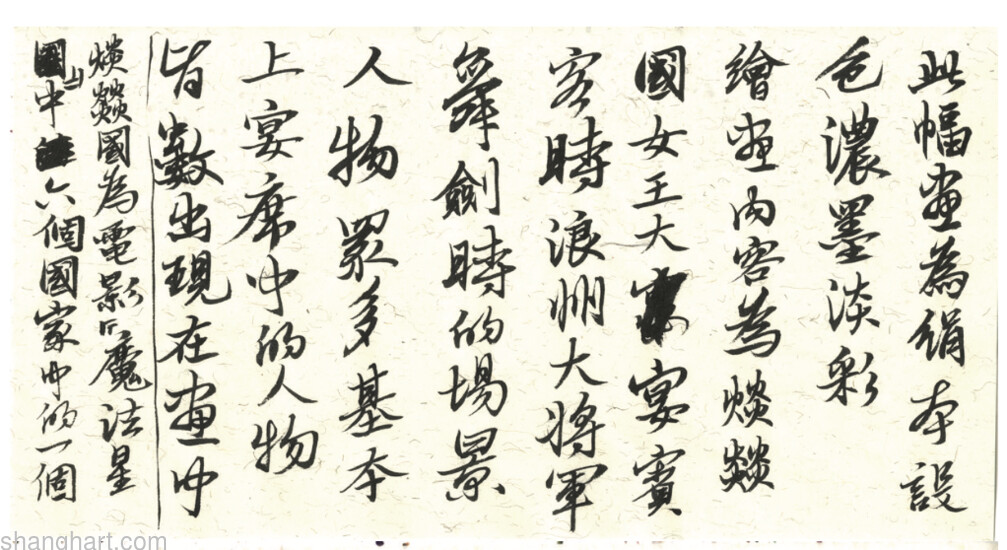 此幅画為绢本設
色濃墨淡彩
繪画内容為燚燚
國女王大宴賓
客時浪州大將軍
舞劍時的場景
人物眾多基本
上宴席中的人物
皆數出現在画中
燚燚國為電影《魔法星
》中六個國家中的一個
shanghart.com